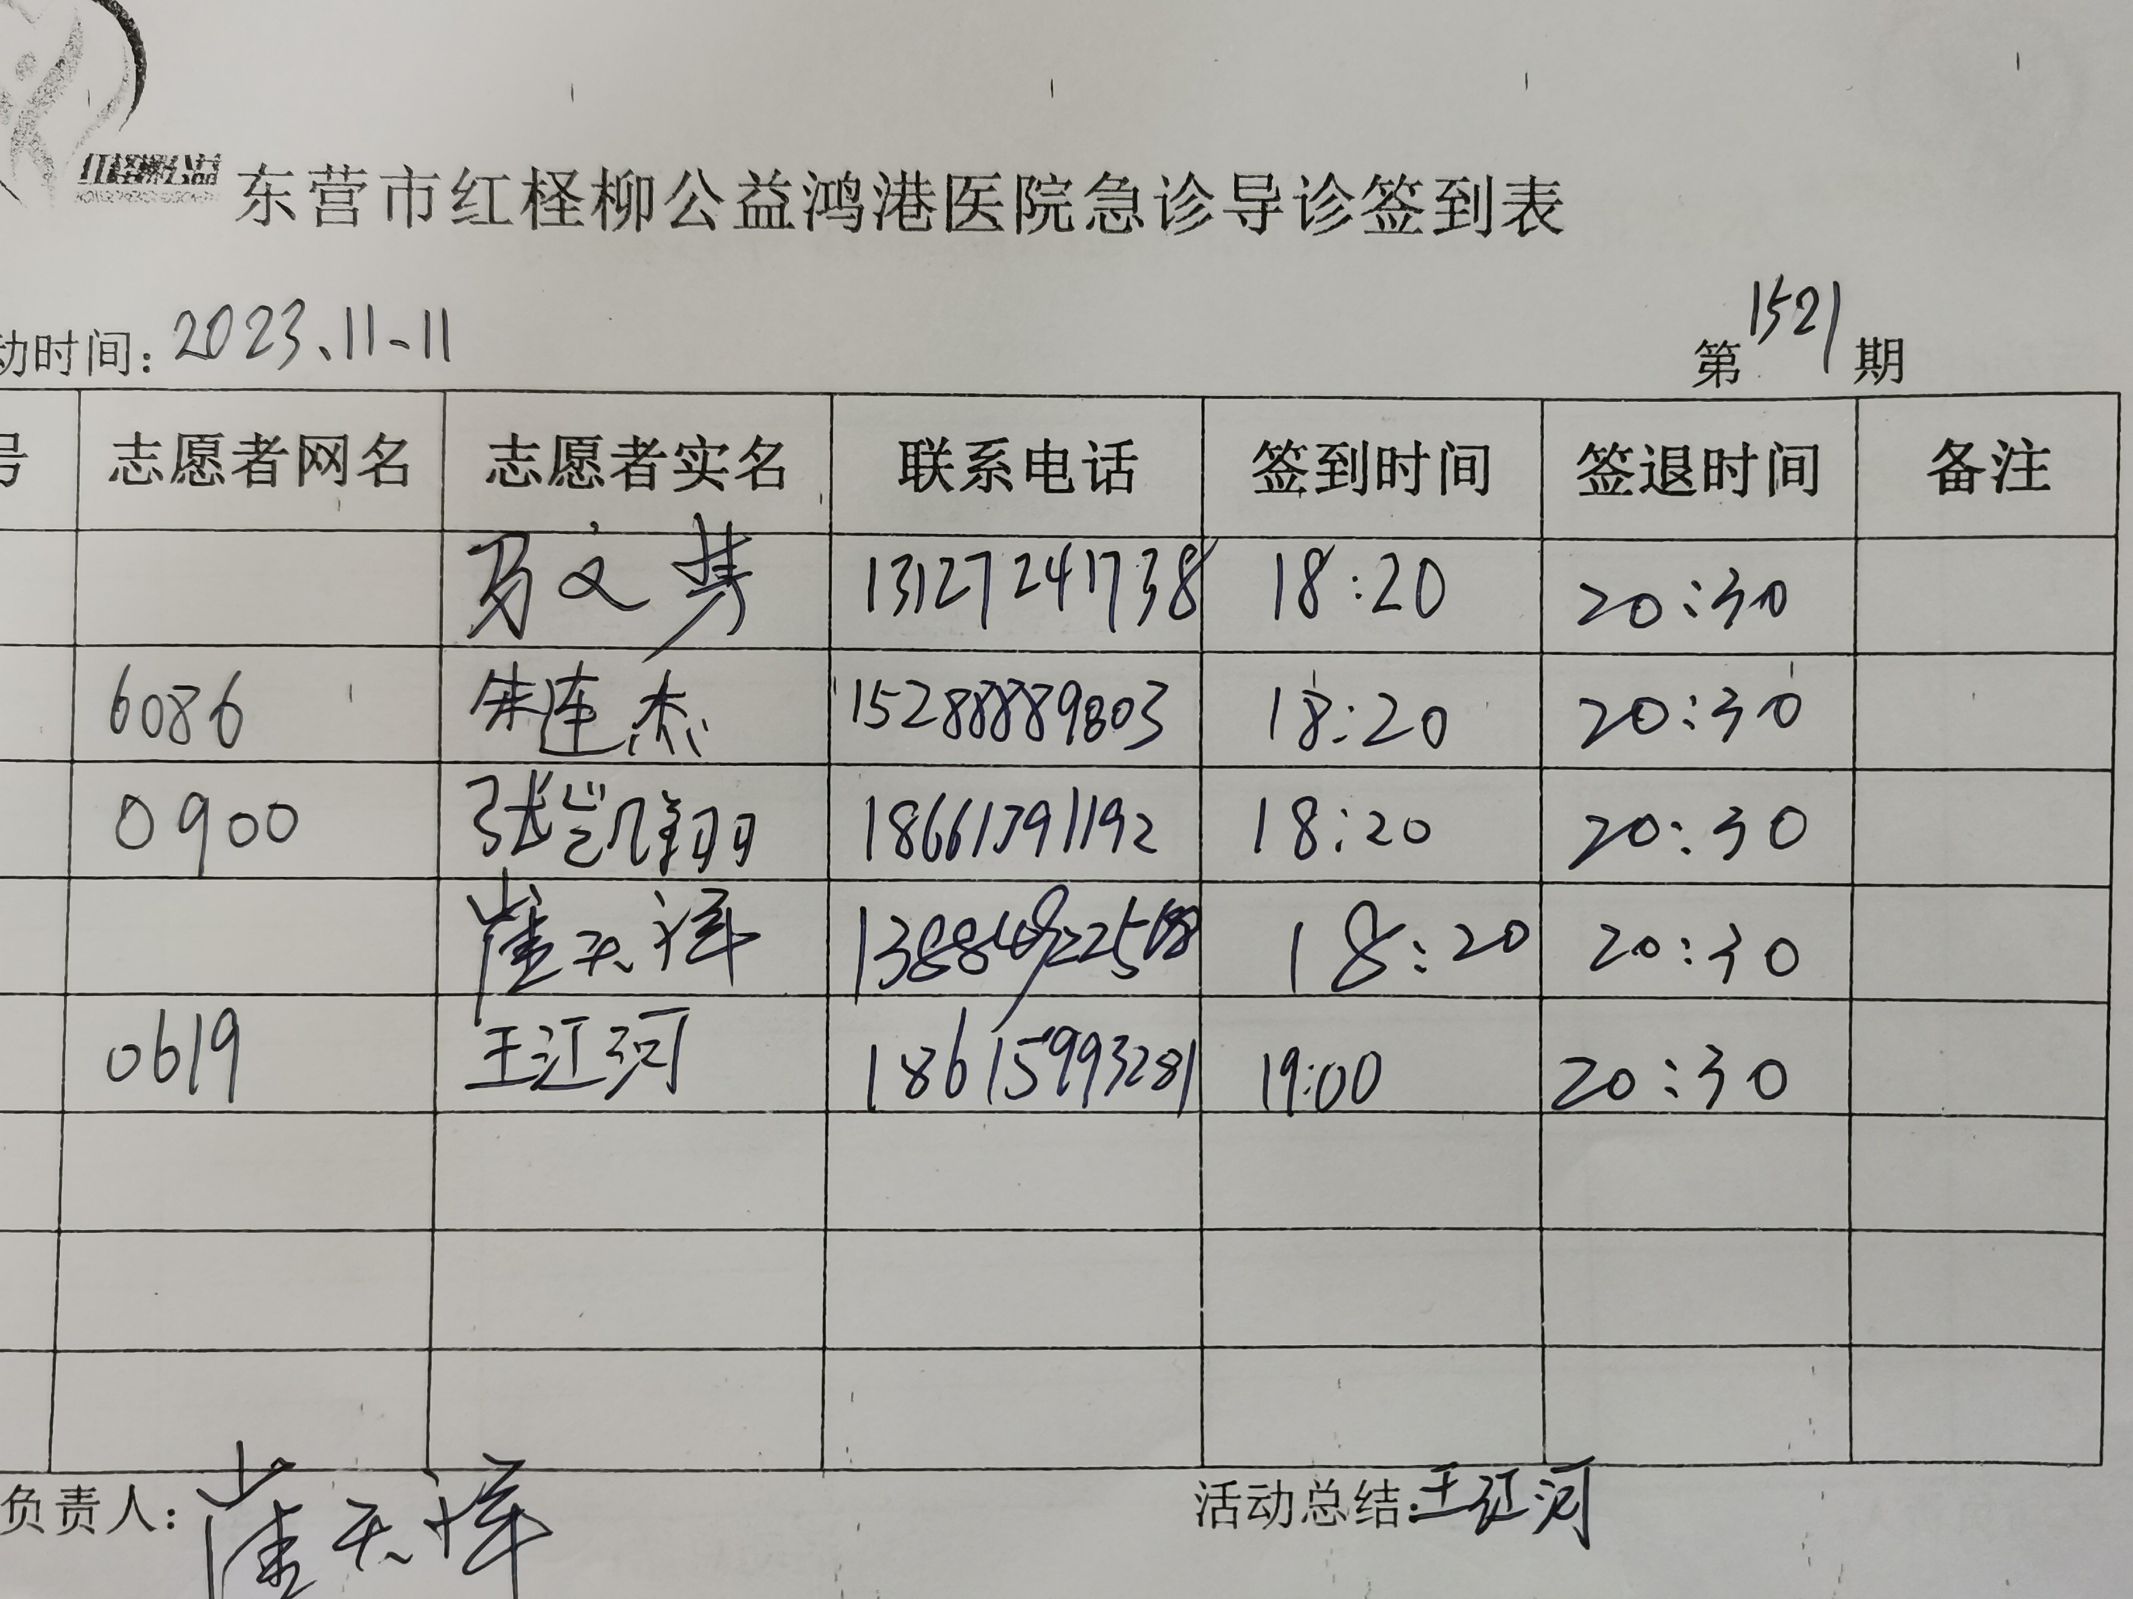 红柽柳公益
东营市红柽柳公益鸿港医院急诊导诊签到表
动时间:2023.11-11 第1521期
号 志愿者网名 志愿者实名 联系电话 签到时间 签退时间 备注
文 13127241738 18:20 20:30
6086 朱连杰 15288889803 18:20 20:30
0900 张凯翔 18661391192 18:20 20:30
崔天洋 18:20 20:30
0619 王江河 18615993281 19:00 20:30
负责人:崔天洋 活动总结:王江河